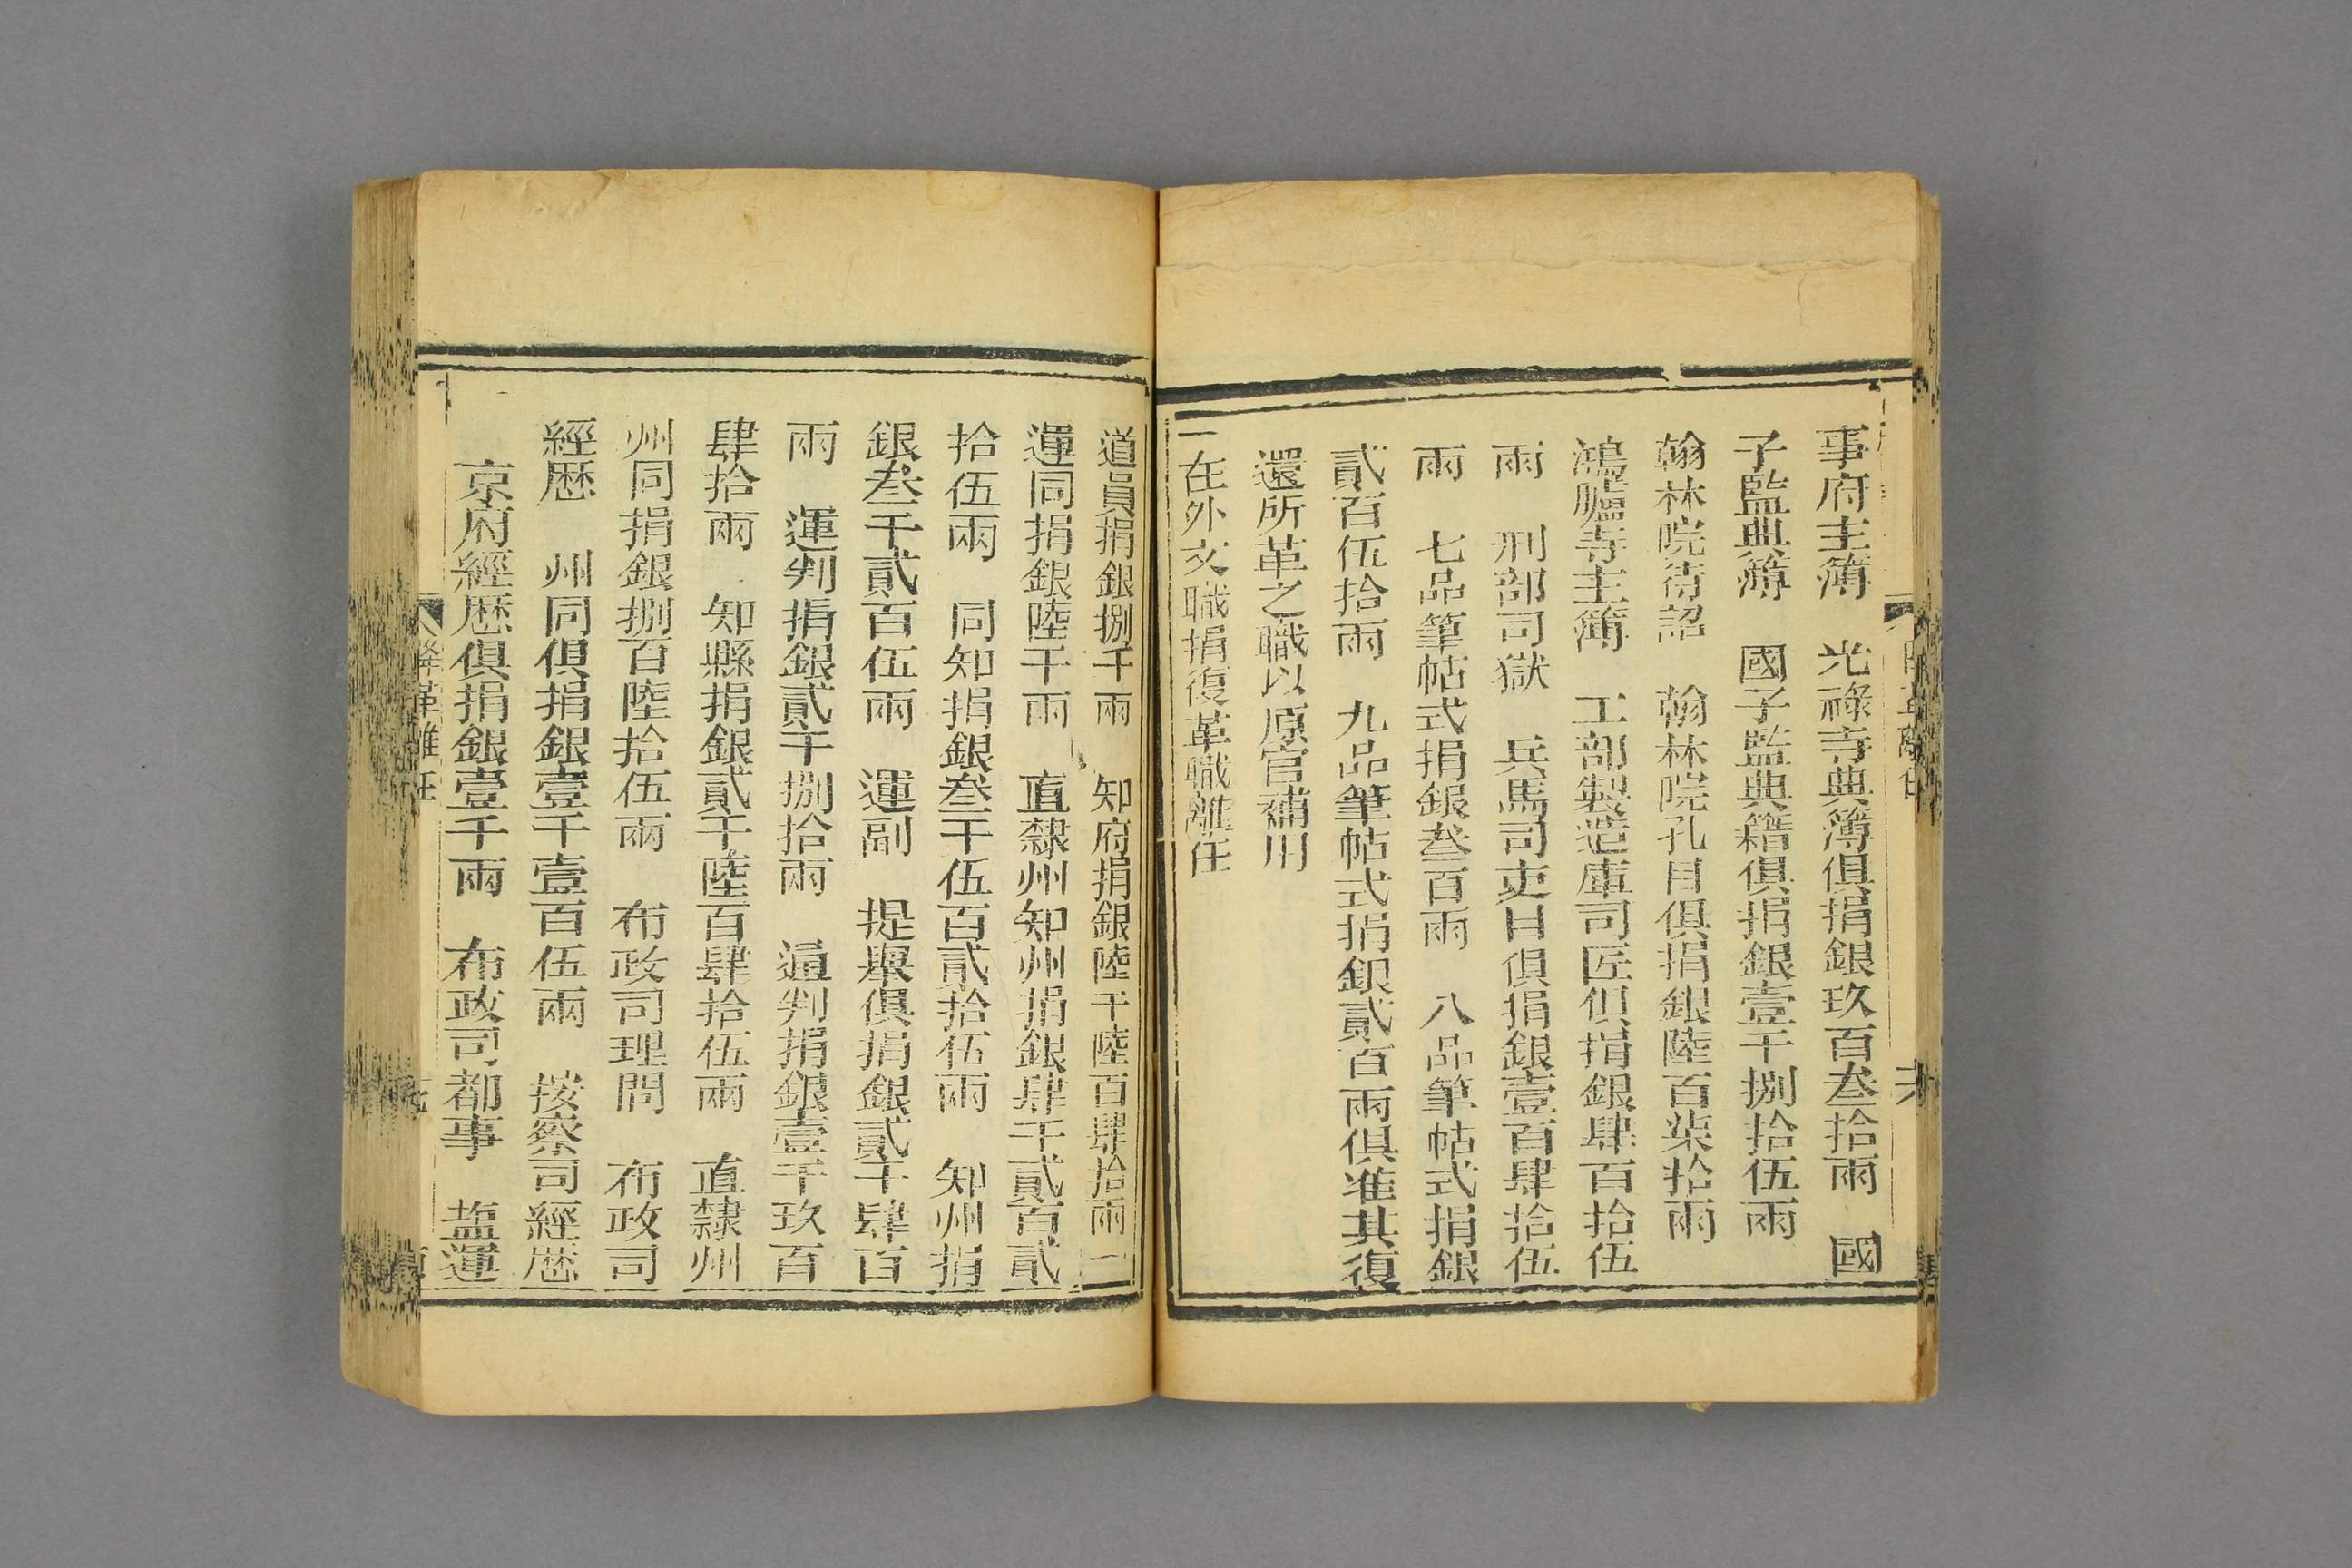 事府主簿　光祿寺典簿俱捐銀玖百叁拾兩　國
子監典簿　國子監典籍俱捐銀壹千捌拾伍兩
翰林院待詔　翰林院孔目俱捐銀陸百柒拾兩
鴻臚寺主簿　工部製造庫司匠俱捐銀肆百拾伍
兩　刑部司獄　兵馬司吏目俱捐銀壹百肆拾伍
兩　七品筆帖式捐銀叁百兩　八品筆帖式捐銀
貳百伍拾兩　九品筆帖式捐銀貳百兩俱准其復
還所革之職以原官補用
一在外文職捐復革職離任
道員捐銀捌千兩　知府捐銀陸千陸百肆拾兩
運同捐銀陸千兩　直隸州知州捐銀肆千貳百貳
拾伍兩　同知捐銀叁千伍百貳拾伍兩　知州捐
銀叁千貳百伍兩　運副　提舉俱捐銀貳千肆百
兩　運判捐銀貳千捌拾兩　通判捐銀壹千玖百
肆拾兩　知縣捐銀貳千陸百肆拾伍兩　直隸州
州同捐銀捌百陸拾伍兩　布政司理問　布政司
經歷　州同俱捐銀壹千壹百伍兩　按察司經歷
京府經歷俱捐銀壹千兩　布政司都事　塩運
降革離任